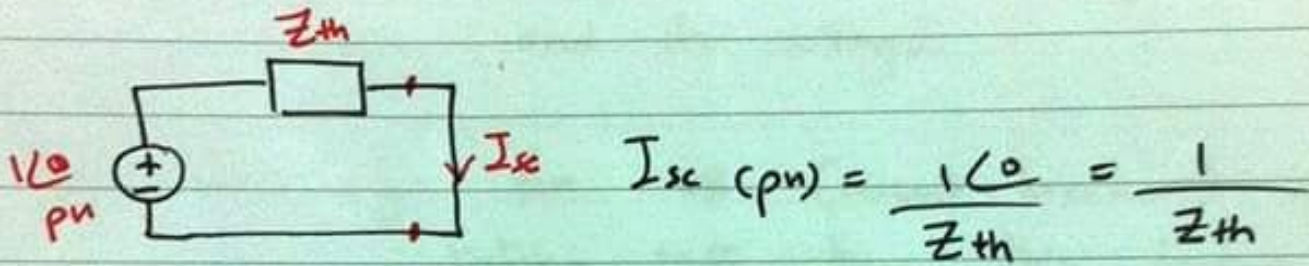 Zth
1∠0
pu
+
-
Isc
Isc (pu) = 1∠0 / Zth = 1 / Zth